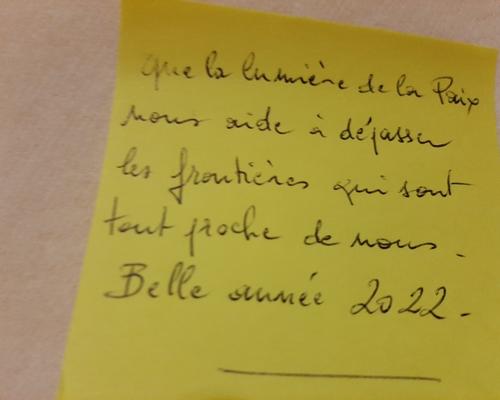 Que la lumière de la Paix
nous aide à dépasser
les frontières qui sont
tout proche de nous.
Belle année 2022.